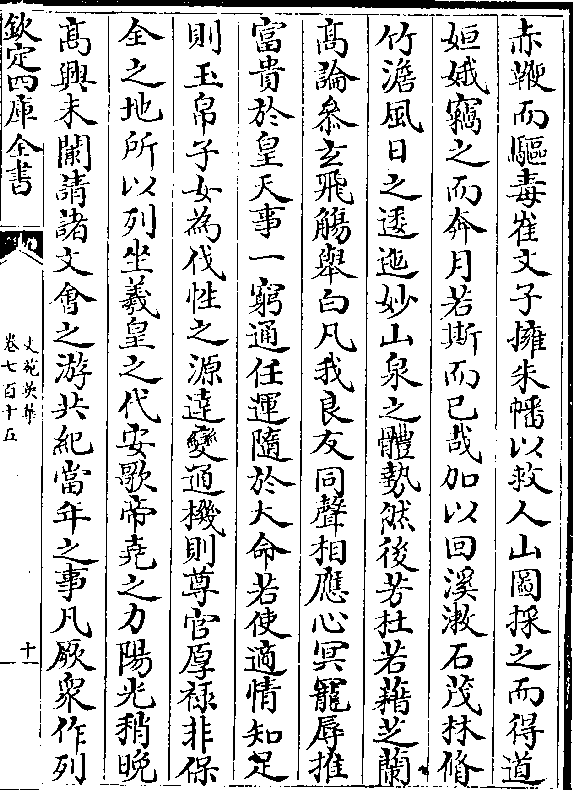 赤鞭而驅毒崔文子擁朱幡以救人山圖採之而得道
姮娥竊之而奔月若斯而已哉加以回溪漱石茂林脩
竹澹風日之逶迤妙山泉之體勢然後芳杜若藉芝蘭
髙論叅玄飛觴舉白凡我良友同聲相應心冥寵辱推
富貴於皇天事一窮通任運隨於大命若使適情知足
則玉帛子女為伐性之源達變通機則尊官厚禄非保
全之地所以列坐羲皇之代安歌帝堯之力陽光稍晚
髙興未闌請諸文會之游共紀當年之事凡厥衆作列
欽定四庫全書
文苑英華
卷七百十五
十